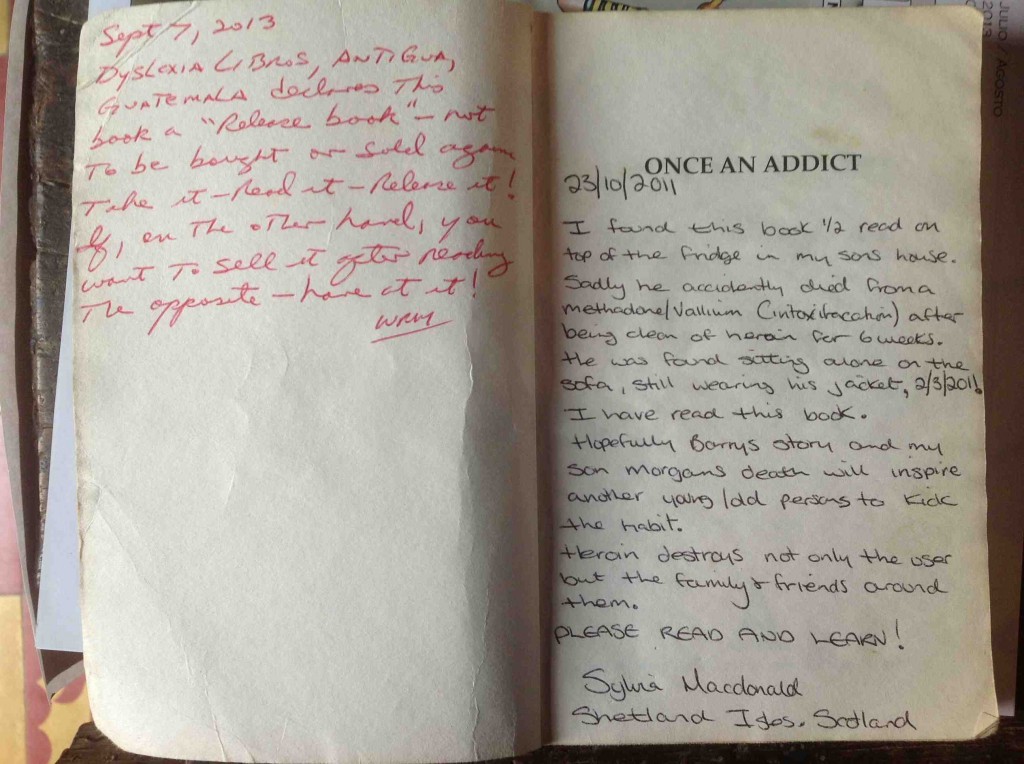 Sept 7, 2013
DYSLEXIA LIBROS, ANTIGUA,
GUATEMALA declares This
book a "Release book" – not
To be bought or sold again
Take it – Read it – Release it!
If, on The other hand, you
want To sell it after reading
The opposite – have at it!
JULIO / AGOSTO
2013
ONCE AN ADDICT
23/10/2011
I found this book 1/2 read on
top of the fridge in my sons house.
Sadly he accidently died from a
methadone/Vallium (intoxitracation) after
being clean of heroin for 6 weeks.
He was found sitting alone on the
sofa, still wearing his jacket, 2/3/2011.
I have read this book.
Hopefully Barrys story and my
son Morgans death will inspire
another young/old persons to kick
the habit.
Heroin destroys not only the user
but the family & friends around
them.
PLEASE READ AND LEARN!
Sylvia Macdonald
Shetland Isles. Scotland